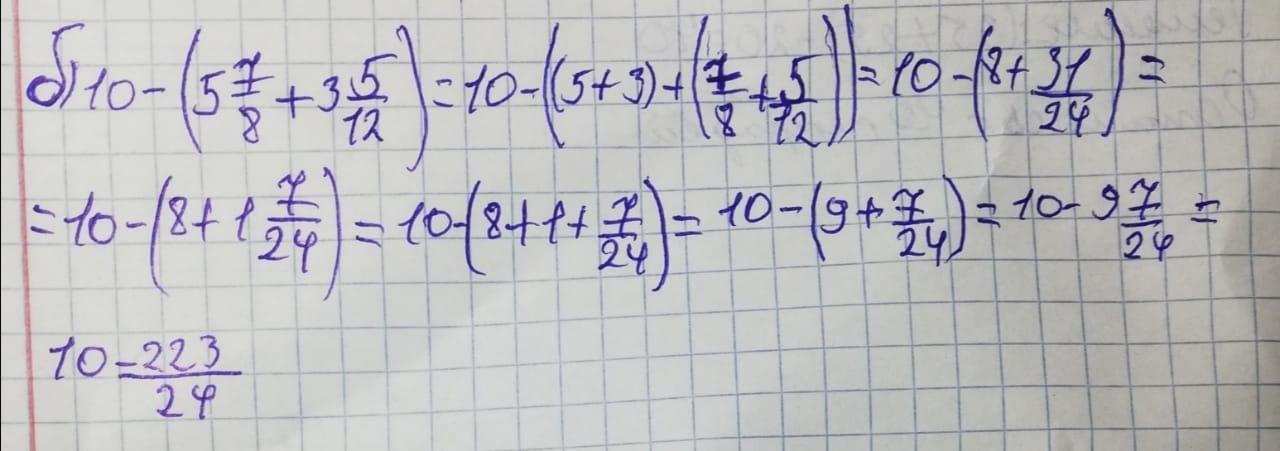 б) 10 - (5 7/8 + 3 5/12) = 10 - ((5 + 3) + (7/8 + 5/12)) = 10 - (8 + 31/24) =
= 10 - (8 + 1 7/24) = 10 - (8 + 1 + 7/24) = 10 - (9 + 7/24) = 10 - 9 7/24 =
10 - 223/24